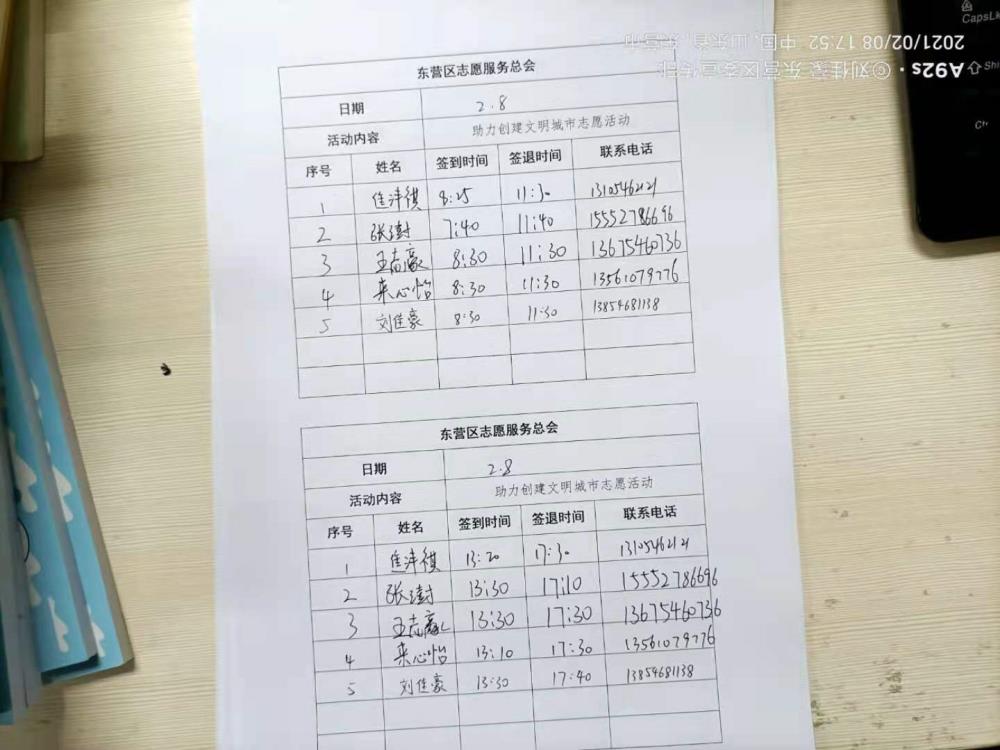 CapsLk
A92s · ©刘佳豪 东营区委宣传部
2021/02/08 17:52 中国, 山东省, 东营市
东营区志愿服务总会
日期 2.8
活动内容 助力创建文明城市志愿活动
序号 姓名 签到时间 签退时间 联系电话
1 8:25 11:30
2 7:40 11:40 15552786696
3 王志豪 8:30 11:30 13675460736
4 来心怡 8:30 11:30 13561079776
5 刘佳豪 8:30 11:30 13854681138
东营区志愿服务总会
日期 2.8
活动内容 助力创建文明城市志愿活动
序号 姓名 签到时间 签退时间 联系电话
1 13:20 17:30
2 13:30 17:10 15552786696
3 王志豪 13:30 17:30 13675460736
4 来心怡 13:10 17:30 13561079776
5 刘佳豪 13:30 17:40 13854681138